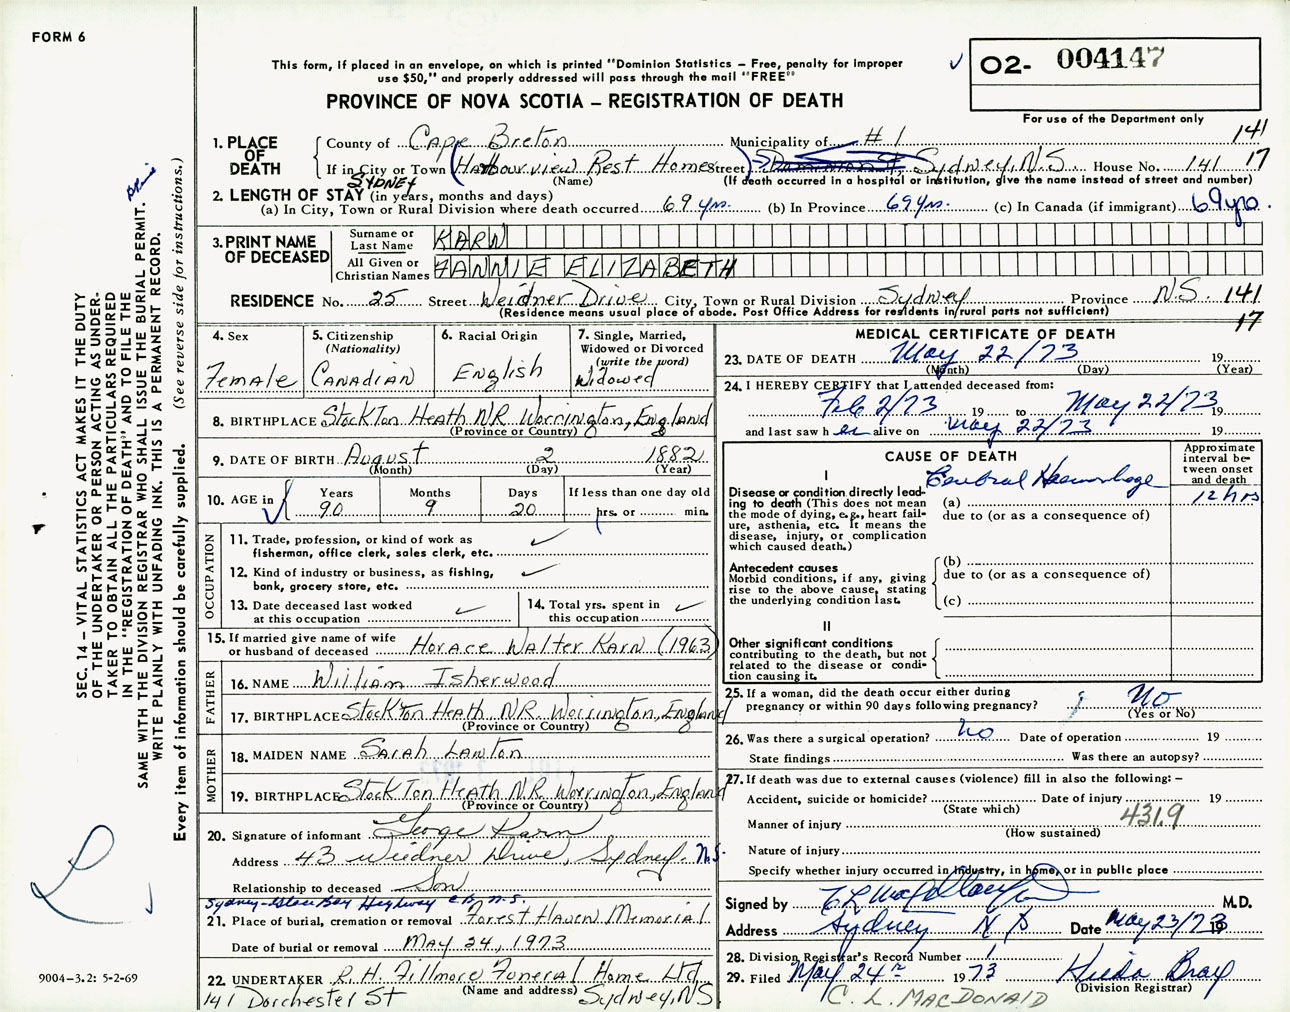 FORM 6
This form, if placed in an envelope, on which is printed "Dominion Statistics – Free, penalty for improper
use $50," and properly addressed will pass through the mail "FREE"
O2- 004147
PROVINCE OF NOVA SCOTIA – REGISTRATION OF DEATH
For use of the Department only
1. PLACE OF DEATH
County of Cape Breton Municipality of #1 141
If in City or Town (Harbourview Rest Home Street) Sydney, N.S. House No. 141 17
(Name) (If death occurred in a hospital or institution, give the name instead of street and number)
SYDNEY
2. LENGTH OF STAY (in years, months and days)
(a) In City, Town or Rural Division where death occurred 69 yrs. (b) In Province 69 yrs. (c) In Canada (if immigrant) 69 yrs.
3. PRINT NAME OF DECEASED
Surname or Last Name KARN
All Given or Christian Names FANNIE ELIZABETH
RESIDENCE No. 25 Street Weidner Drive City, Town or Rural Division Sydney Province N.S. 141
(Residence means usual place of abode. Post Office Address for residents in rural parts not sufficient) 17
4. Sex Female
5. Citizenship (Nationality) CANADIAN
6. Racial Origin English
7. Single, Married, Widowed or Divorced (write the word) Widowed
8. BIRTHPLACE StockTon Heath NR Warrington, England
(Province or Country)
9. DATE OF BIRTH August 2 1882
(Month) (Day) (Year)
10. AGE in Years 90 Months 9 Days 20 If less than one day old hrs. or min.
OCCUPATION
11. Trade, profession, or kind of work as
fisherman, office clerk, sales clerk, etc.
12. Kind of industry or business, as fishing,
bank, grocery store, etc.
13. Date deceased last worked
at this occupation
14. Total yrs. spent in
this occupation
15. If married give name of wife
or husband of deceased Horace Walter Karn (1963)
FATHER
16. NAME William Isherwood
17. BIRTHPLACE StockTon Heath NR. Warrington, England
(Province or Country)
MOTHER
18. MAIDEN NAME Sarah Lawton
19. BIRTHPLACE StockTon Heath NR. Warrington, England
(Province or Country)
20. Signature of informant George Karn
Address 43 Wiedner Drive, Sydney. N.S.
Relationship to deceased Son
Sydney-Glace Bay Highway C.B. N.S.
21. Place of burial, cremation or removal Forest Haven Memorial.
Date of burial or removal May 24, 1973
22. UNDERTAKER R.H. Fillmore Funeral Home Ltd,
(Name and address)
141 Dorchester St Sydney, NS
MEDICAL CERTIFICATE OF DEATH
23. DATE OF DEATH May 22/73 19
(Month) (Day) (Year)
24. I HEREBY CERTIFY that I attended deceased from:
Feb 2/73 19 to May 22/73 19
and last saw h er alive on May 22/73 19
CAUSE OF DEATH
Approximate interval between onset and death
I
Disease or condition directly leading to death (This does not mean the mode of dying, e.g., heart failure, asthenia, etc. It means the disease, injury, or complication which caused death.)
(a) Cerebral Haemorrhage 12 hrs
due to (or as a consequence of)
Antecedent causes
Morbid conditions, if any, giving rise to the above cause, stating the underlying condition last.
(b)
due to (or as a consequence of)
(c)
II
Other significant conditions
contributing to the death, but not related to the disease or condition causing it.
25. If a woman, did the death occur either during
pregnancy or within 90 days following pregnancy? No
(Yes or No)
26. Was there a surgical operation? No Date of operation 19
State findings Was there an autopsy?
27. If death was due to external causes (violence) fill in also the following: –
Accident, suicide or homicide? Date of injury 19
(State which)
Manner of injury 431.9
(How sustained)
Nature of injury
Specify whether injury occurred in industry, in home, or in public place
Signed by M.D.
Address Sydney N S Date May 23/73 19
28. Division Registrar's Record Number 1
29. Filed May 24th 1973 Bray
(Division Registrar)
C. L. MACDONALD
SEC. 14 – VITAL STATISTICS ACT MAKES IT THE DUTY
OF THE UNDERTAKER OR PERSON ACTING AS UNDER-
TAKER TO OBTAIN ALL THE PARTICULARS REQUIRED
IN THE "REGISTRATION OF DEATH" AND TO FILE THE
SAME WITH THE DIVISION REGISTRAR WHO SHALL ISSUE THE BURIAL PERMIT.
WRITE PLAINLY WITH UNFADING INK. THIS IS A PERMANENT RECORD.
Every item of information should be carefully supplied. (See reverse side for instructions.)
9004–3.2: 5-2-69